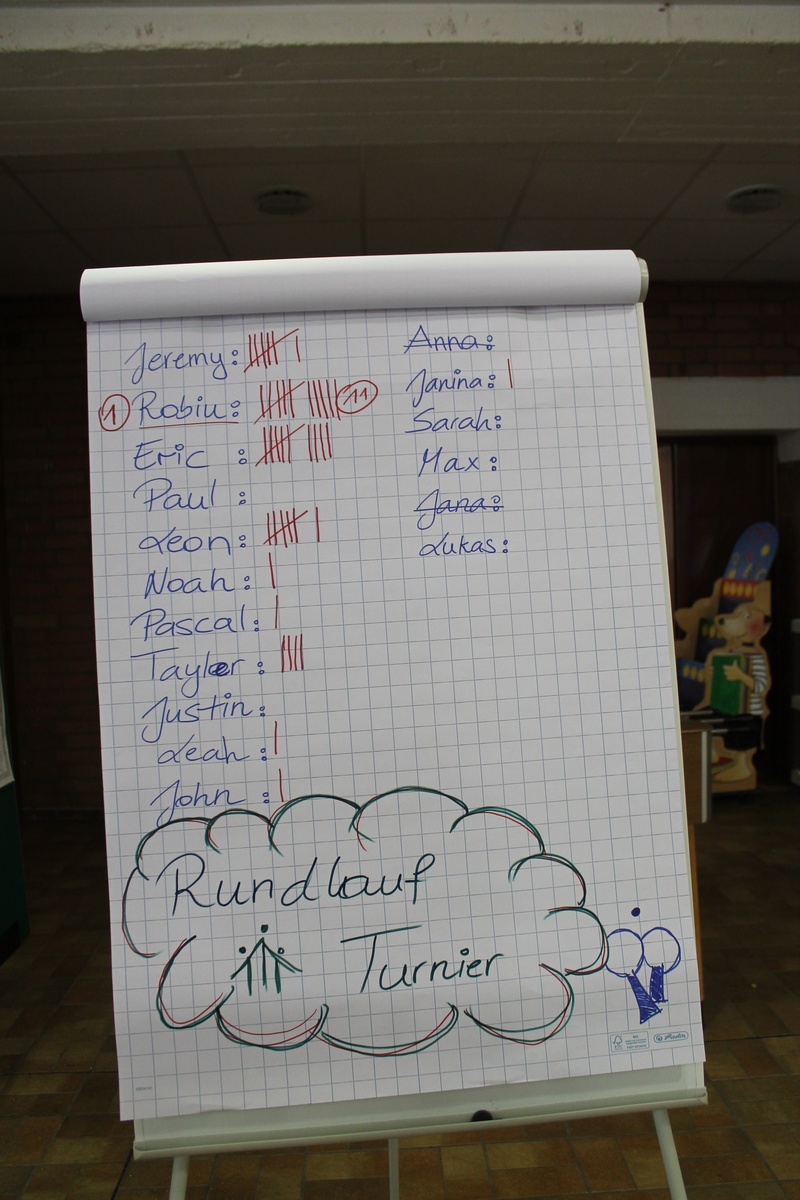 Jeremy:
1 Robin: 11
Eric :
Paul :
Leon:
Noah:
Pascal:
Tayler :
Justin:
Leah:
John :
Anna:
Janina:
Sarah:
Max :
Jana:
Lukas:
Rundlauf
Turnier